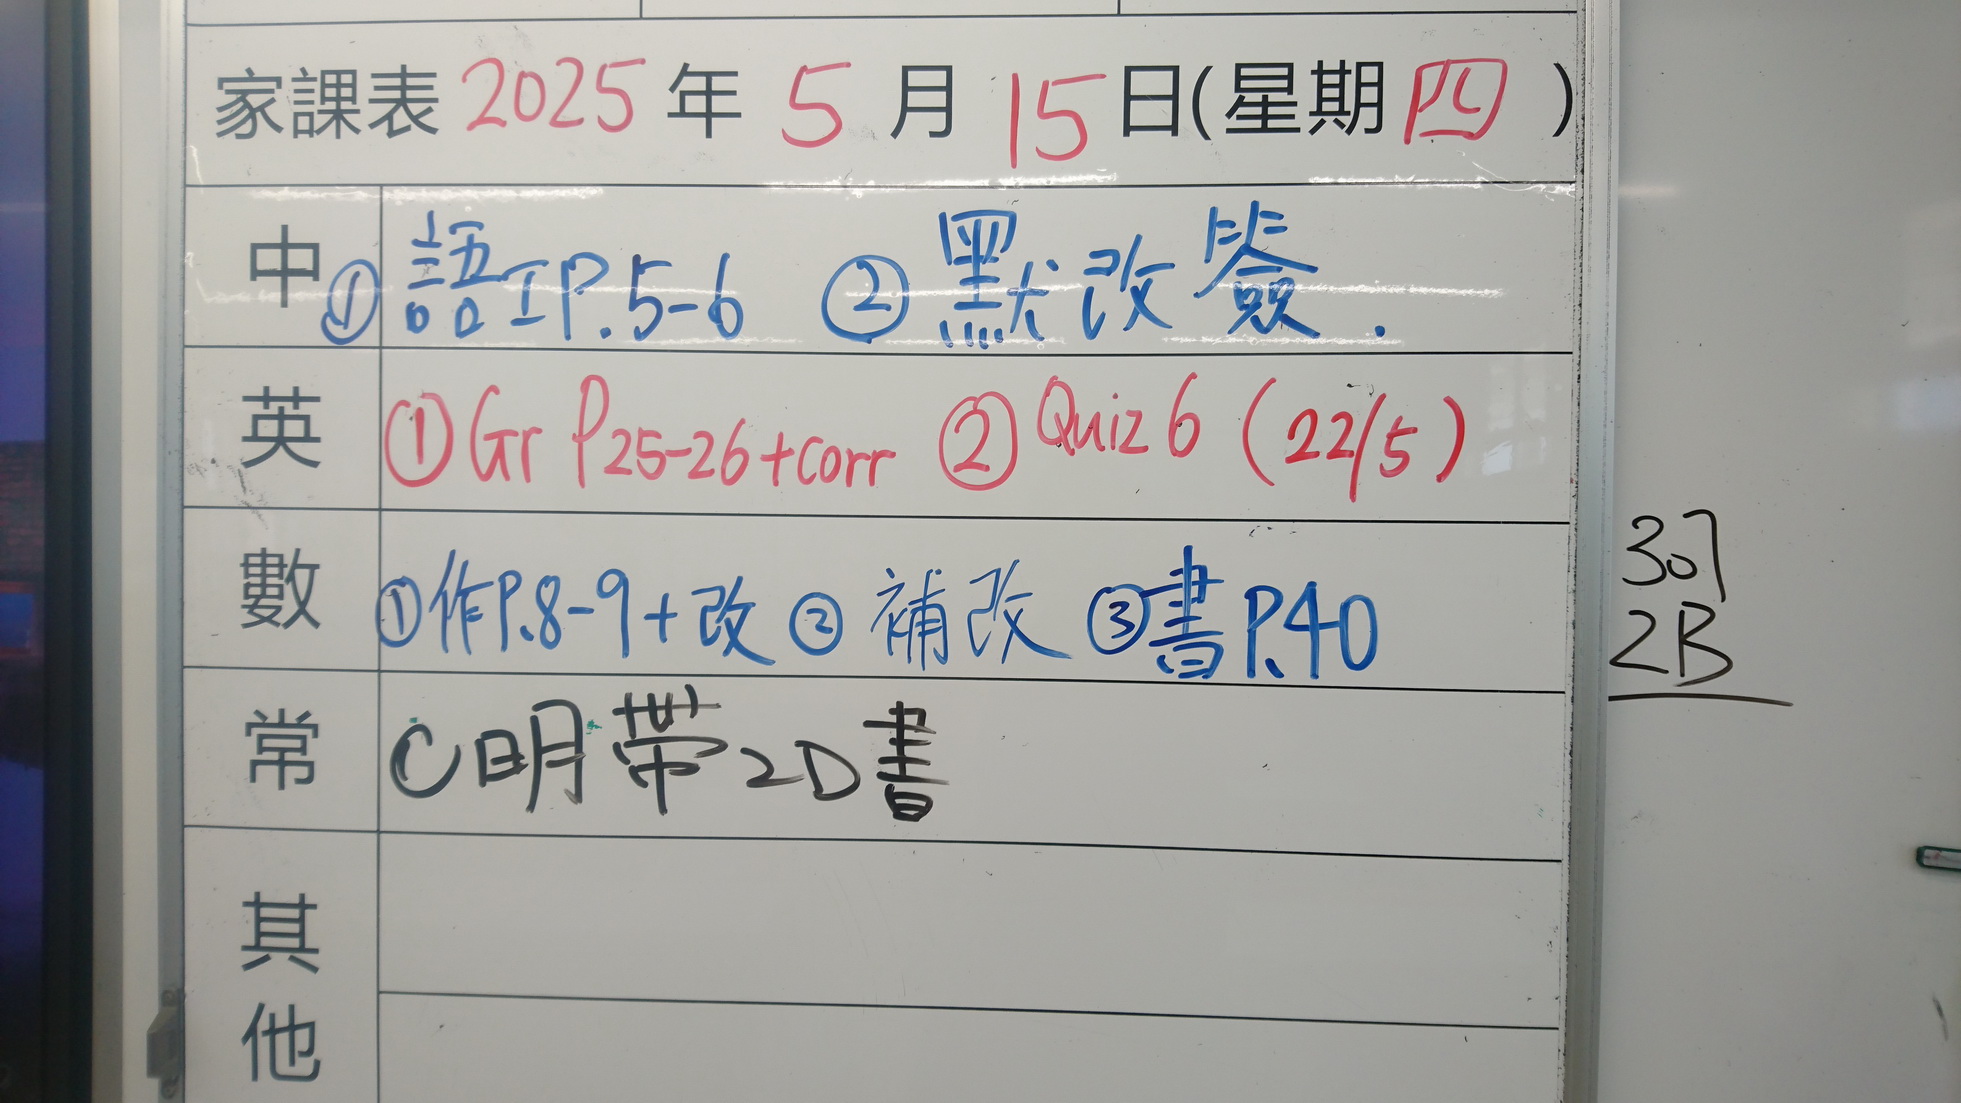 家課表 2025 年 5 月 15 日(星期 四 )
中 ① 語工P.5-6 ② 默改簽.
英 ① Gr P25-26+corr ② Quiz 6 (22/5)
數 ① 作P.8-9+改 ② 補改 ③ 書P.40
常 C 明帶2D書
其他
307
2B